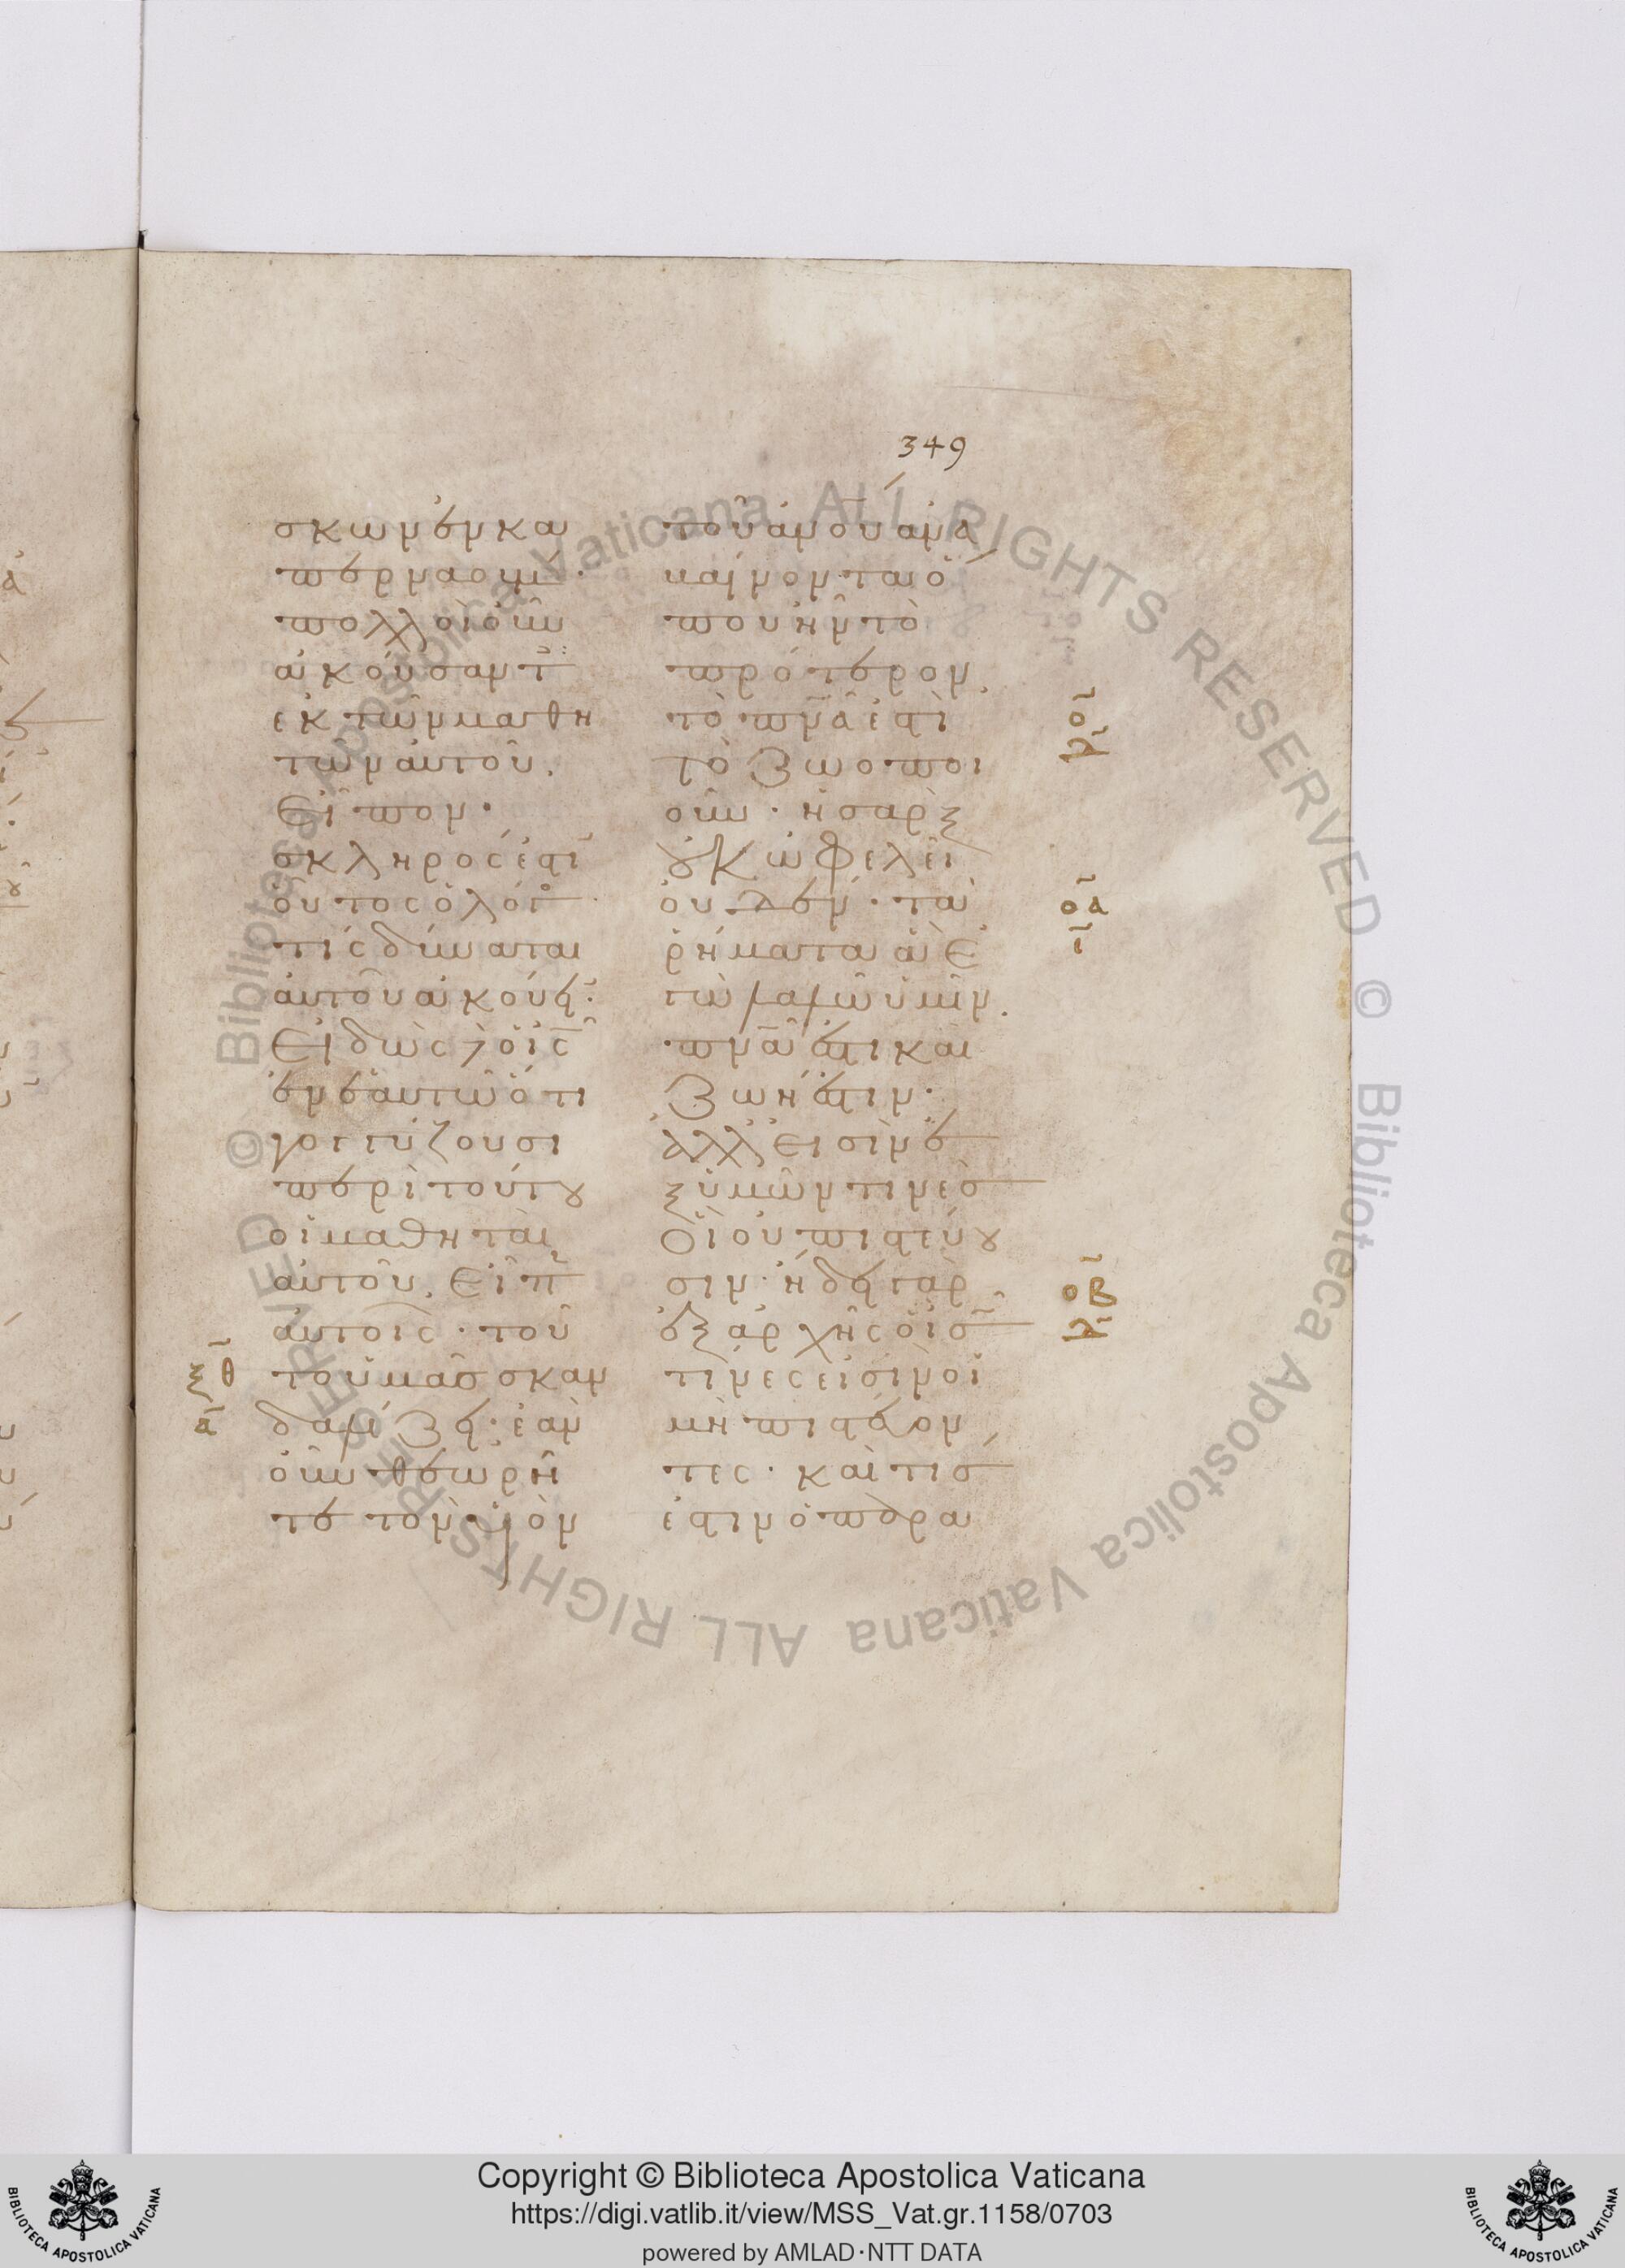 349
σκων ἐν κα
περναούμ·
πολλοὶ οὖν
ἀκούσαντ
ἐκ τῶν μαθη
τῶν αὐτοῦ.
εἶπον·
σκληρός ἐστι
οὗτος ὁ λόγ
τίς δύναται
αὐτοῦ ἀκούειν·
εἰδὼς δὲ ὁ ις
ἐν ἑαυτῶ ὅτι
γογγύζουσι
περὶ τούτου
οἱ μαθηταὶ
αὐτοῦ. εἶπ
αὐτοῖς· τοῦ
ξθ
α
το ὑμᾶσ σκαν
δαλίζει· ἐὰν
οὖν θεωρῆ
τε τὸν υἱὸν
τοῦ ανου ανα
βαίνονται ὅ
που ἦν τὸ
πρότερον.
τὸ πνα ἐστὶ
ο
τὸ ζωοποι
οῦν· ἡ σὰρξ
οὐκ ὠφελεῖ
οὐδέν· τὰ
οα
ῥήματα ἃ ἐ
ι
γὼ λαλῶ ὑμῖν.
πνα ἐστι καὶ
ζωή ἐστιν·
ἀλλ εἰσὶν ἐ
ξ ὑμῶν τινὲσ
οἳ οὐ πιστεύου
σιν· ἤδει γὰρ
οβ
ἐξ ἀρχῆς ὁ ισ
τίνες εἰσὶν οἱ
μὴ πιστεύον
τες· καὶ τίσ
ἐστιν ὁ παρα
Copyright © Biblioteca Apostolica Vaticana
https://digi.vatlib.it/view/MSS_Vat.gr.1158/0703
powered by AMLAD·NTT DATA
BIBLIOTECA APOSTOLICA VATICANA
BIBLIOTECA APOSTOLICA VATICANA
© Biblioteca Apostolica Vaticana ALL RIGHTS RESERVED
© Biblioteca Apostolica Vaticana ALL RIGHTS RESERVED